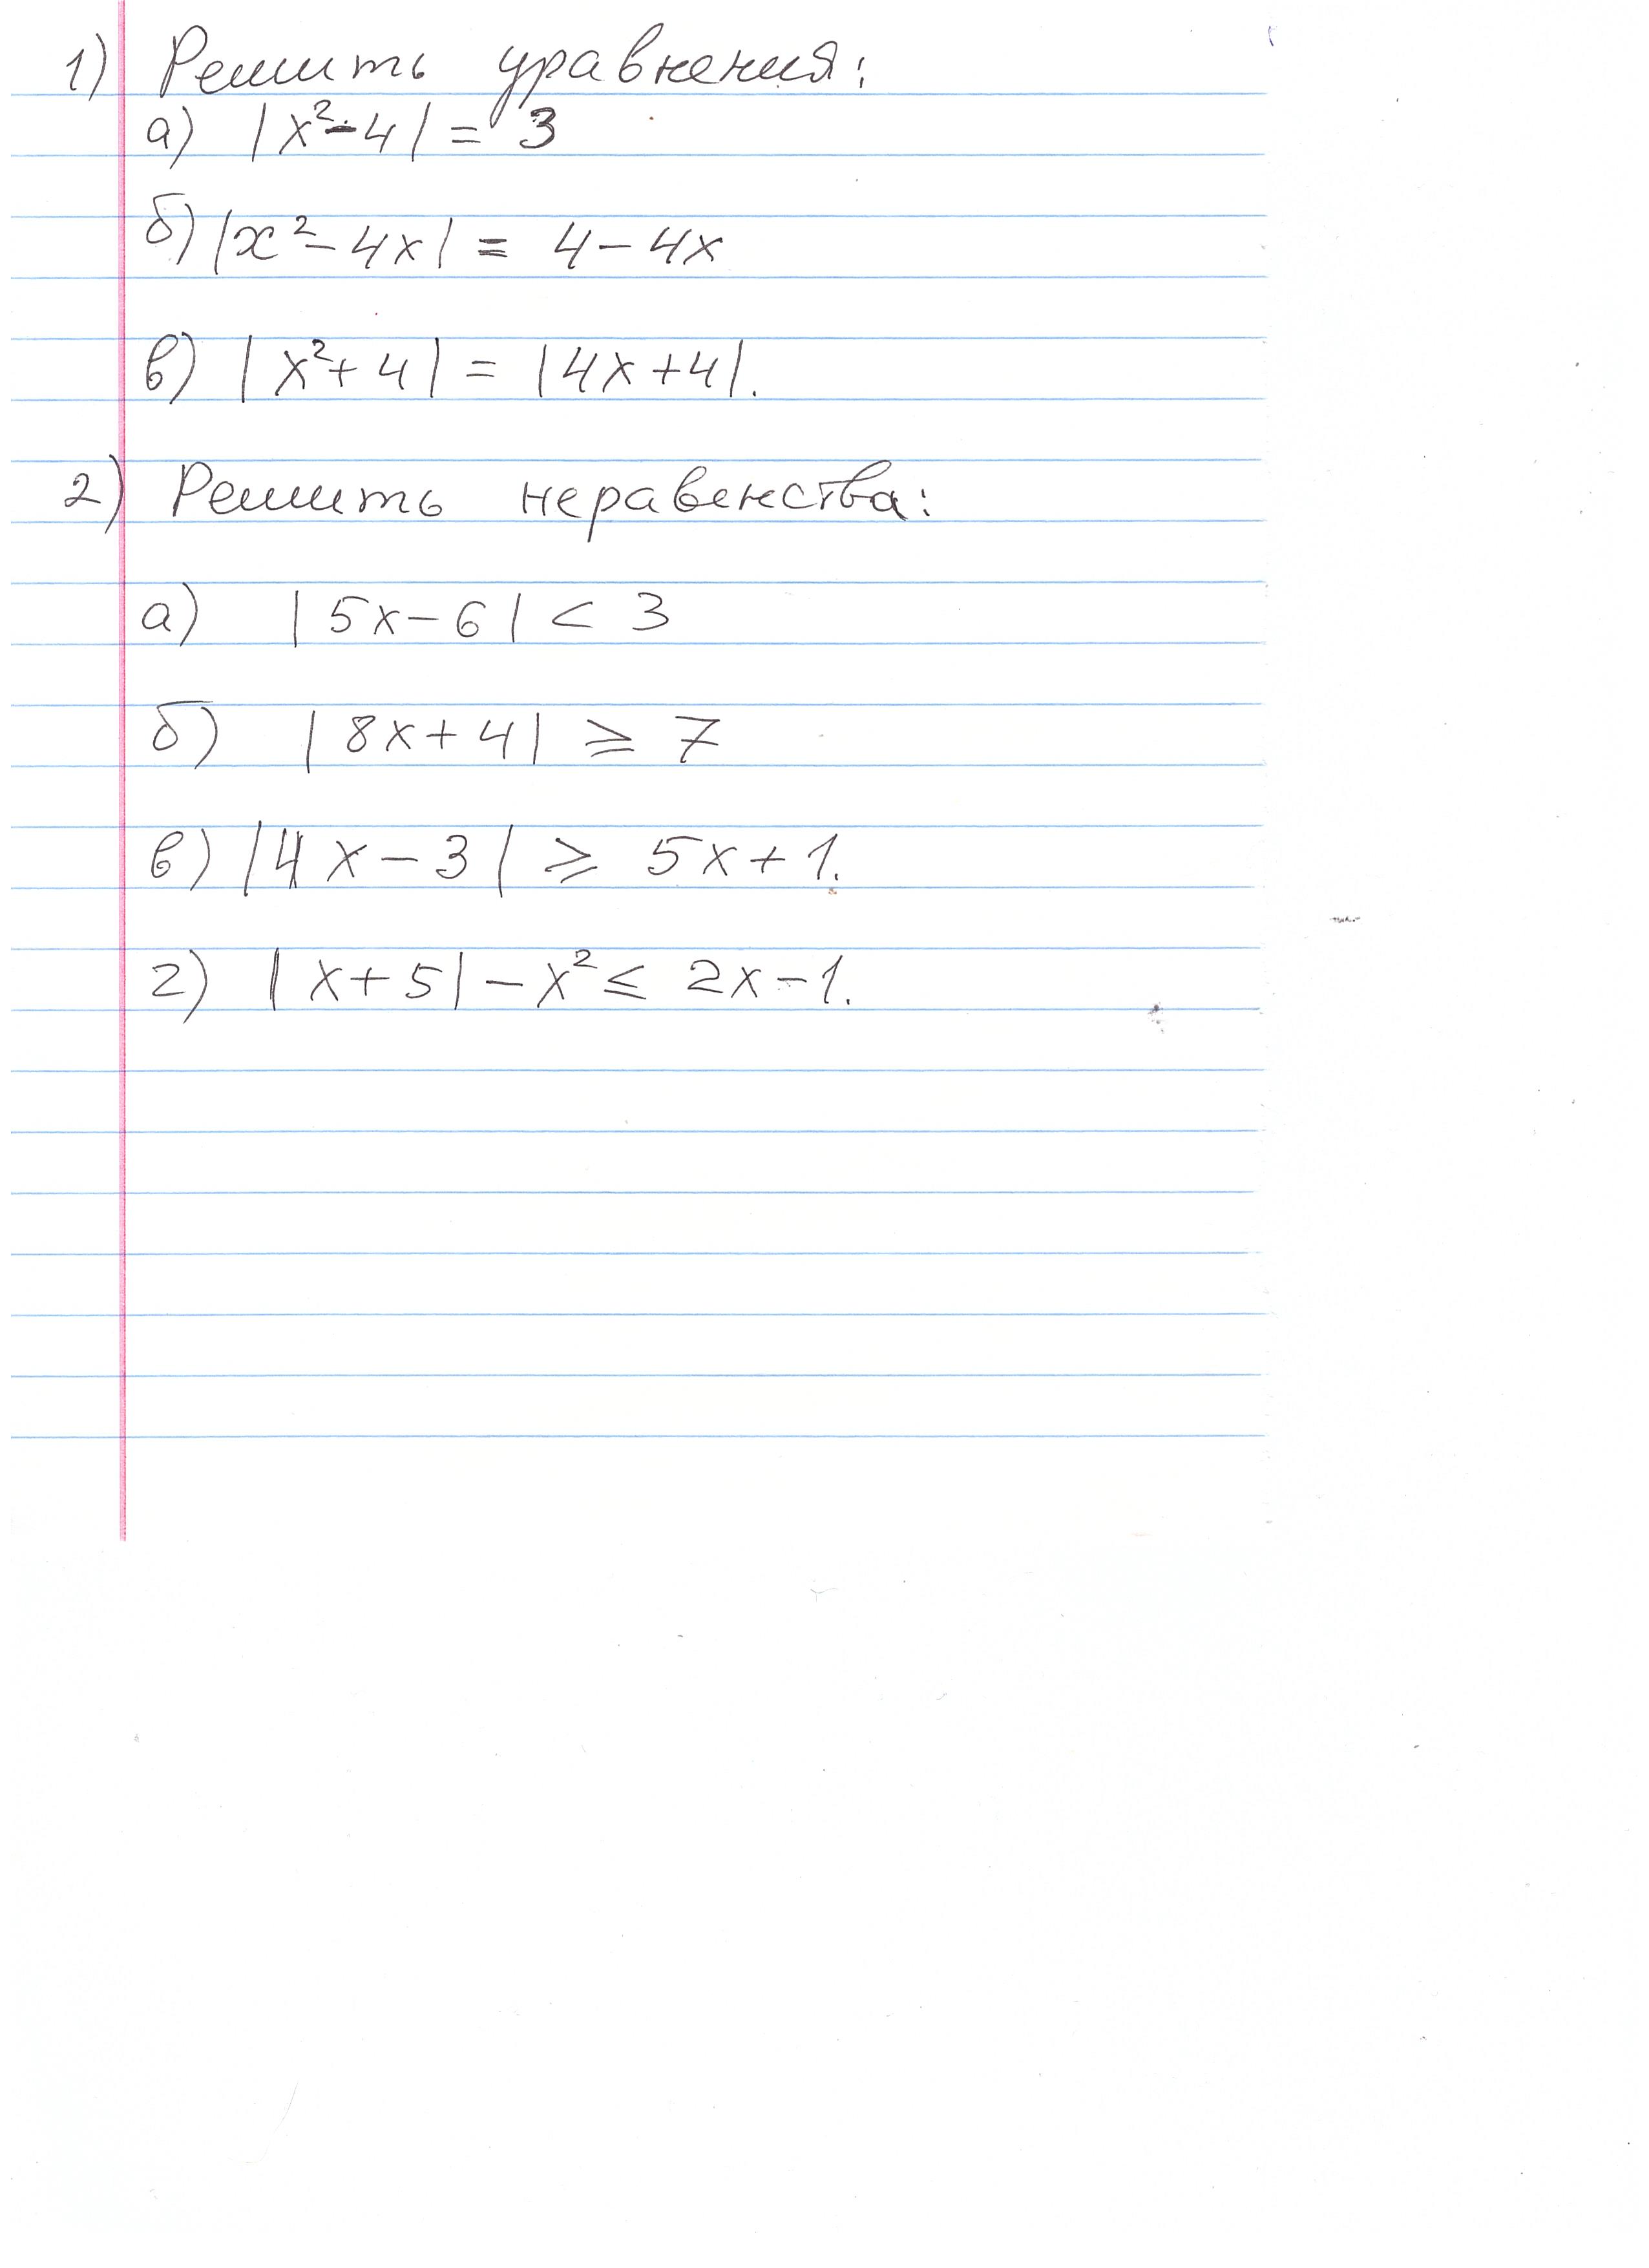 1) Решить уравнения:
а) |x²-4| = 3
б) |x²-4x| = 4-4x
в) |x²+4| = |4x+4|.
2) Решить неравенства:
а) |5x-6| < 3
б) |8x+4| ≥ 7
в) |4x-3| ≥ 5x+1.
г) |x+5|-x² ≤ 2x-1.